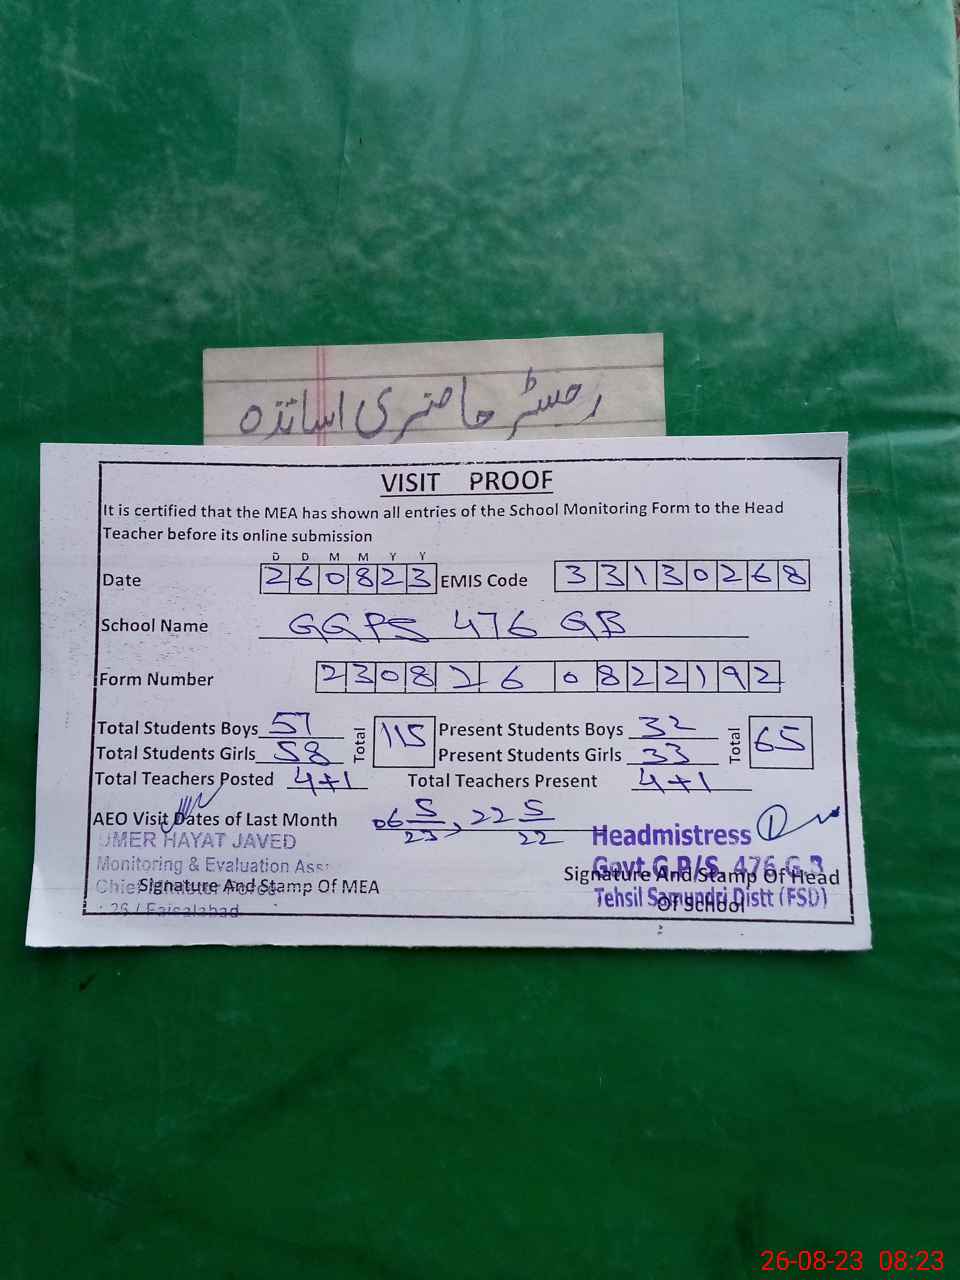 رجسٹر حاضری اساتذہ
VISIT PROOF
It is certified that the MEA has shown all entries of the School Monitoring Form to the Head
Teacher before its online submission
D D M M Y Y
Date 260823 EMIS Code 33130268
School Name GGPS 476 GB
Form Number 2308260822192
Total Students Boys 57 Total 115 Present Students Boys 32 Total 65
Total Students Girls 58 Present Students Girls 33
Total Teachers Posted 4+1 Total Teachers Present 4+1
AEO Visit Dates of Last Month 06 5/23, 22 5/22
UMER HAYAT JAVED
Monitoring & Evaluation Ass
Signature And Stamp Of MEA
26 / Faisalabad
Headmistress
Govt G.P/S, 476 G.B
Signature And Stamp Of Head
Of School
Tehsil Samundri Distt (FSD)
26-08-23 08:23